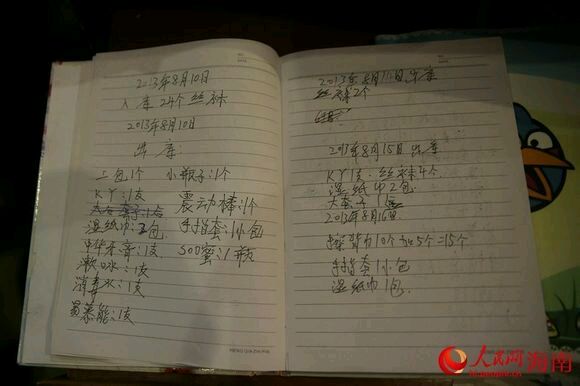 2013年8月10日
入库24个丝袜
2013年8月10日
出库:
三包1个 小瓶子:1个
KY:1支 震动棒:1个
湿纸巾:2包 手指套:1小包
中华牙膏:1支 SOD蜜:1瓶
漱口水:1支
消毒水:1支
2013年8月14日出库
丝袜2个
2013年8月15日 出库
KY1支.丝袜4个
湿纸巾2包
2013年8月16日
搓背巾10个加5个=15个
手指套1小包
湿纸巾1包
人民网 海南